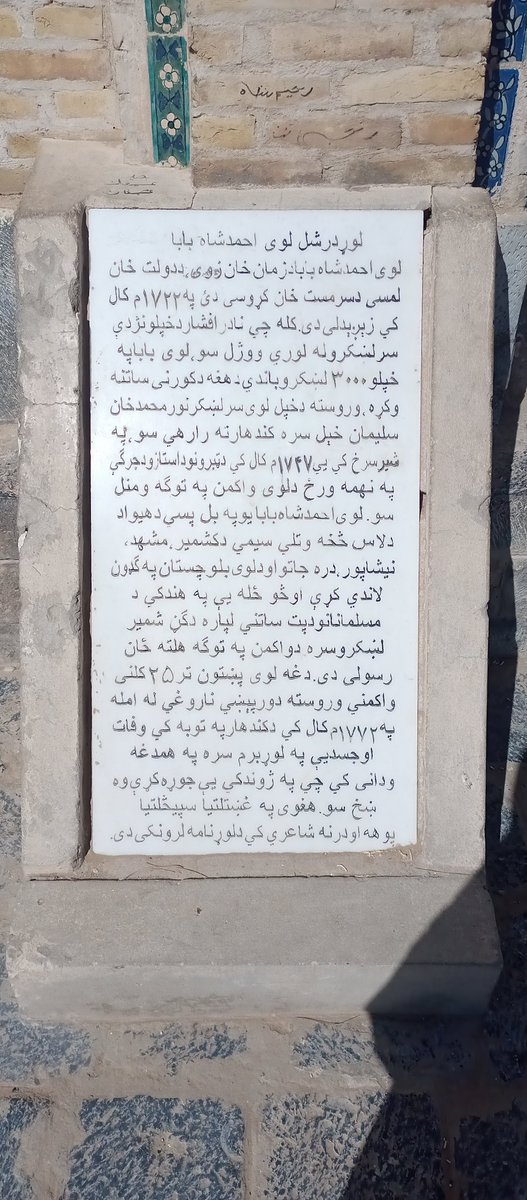 لوړدرشل لوی احمدشاه بابا
لوی احمدشاه بابادزمان خان زوی، ددولت خان
لمسی دسرمست خان کړوسی دئ په۱۷۲۲م کال
کي زېږېدلی دی.کله چي نادرافشاردخپلونژدې
سرلښکروله لوري ووژل سو،لوی باباپه
خپلو ۳۰۰۰ لښکروباندي دهغه دکورنۍ ساتنه
وکړه ،وروسته دخپل لوی سرلښکرنورمحمدخان
سلیمان خېل سره کندهارته رارهي سو،په
شېرسرخ کي یې ۱۷۴۷م کال کي دټبرونوداستازودجرګې
په نهمه ورځ دلوی واکمن په توګه ومنل
سو. لوی احمدشاه بابا یوپه بل پسې دهېواد
دلاس څخه وتلي سیمي دکشمیر،مشهد،
نیشاپور،دره جاتو اودلوی بلوچستان په ګډون
لاندي کړې اوڅو ځله یې په هندکي د
مسلمانانودپت ساتني لپاره دګڼ شمېر
لښکروسره دواکمن په توګه هلته ځان
رسولی دی. دغه لوی پښتون تر۲۵ کلنی
واکمنۍ وروسته دورپېښي ناروغۍ له امله
په ۱۷۷۲م کال کي دکندهارپه توبه کي وفات
اوجسدیې په لوړبرم سره په همدغه
ودانۍ کي چي په ژوندکي یې جوړه کړې وه
ښخ سو. هغوی په غښتلتیا سپېڅلتیا
پوهه اودرنه شاعرۍ کي دلوړنامه لرونکی دی.